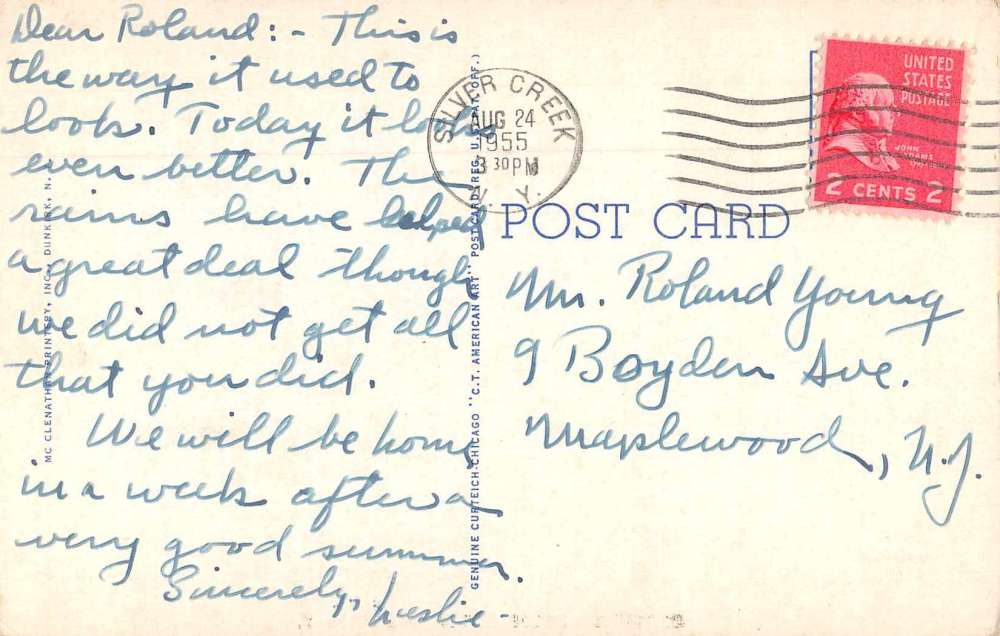 Dear Roland: - This is
the way it used to
look. Today it looks
even better. The
rains have helped
a great deal though
we did not get all
that you did.
We will be home
in a week after a
very good summer.
Sincerely, Leslie -
MC CLENATHEN PRINTERY, INC., DUNKIRK, N.
GENUINE CURTEICH-CHICAGO "C.T. AMERICAN ART" POST CARD (REG. U.S. PAT. OFF.)
SILVER CREEK
AUG 24
1955
3 30 PM
N. Y.
UNITED
STATES
POSTAGE
JOHN
ADAMS
2 CENTS 2
POST CARD
Mr. Roland Young
9 Boyden Ave.
Maplewood, N.J.